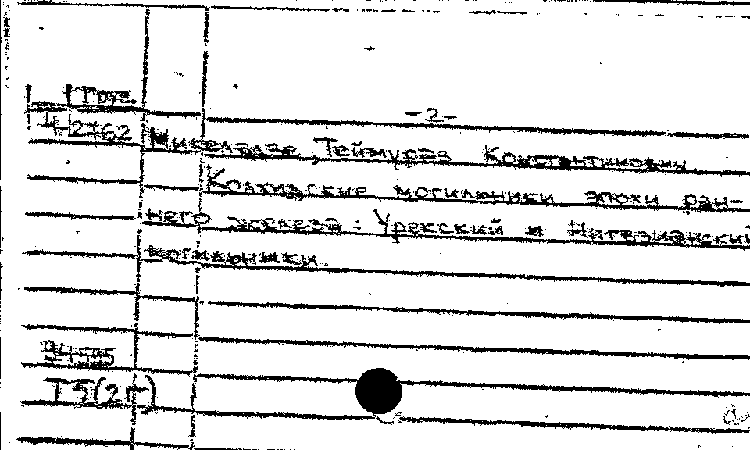 -2-
Груз.
4-2762
Микеладзе, Теймураз Константинович
Колхидские могильники эпохи ран-
него железа: Урекский и Нигвзианский
могильники.
Т5(2Г)